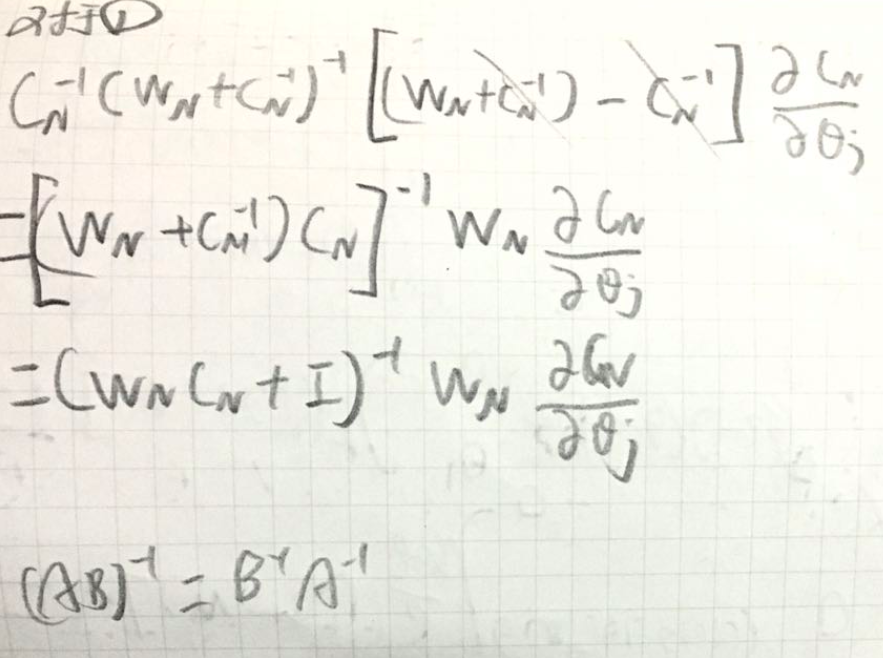 对于①
C_N^{-1}(W_N+C_N^{-1})^{-1}[(W_N+C_N^{-1})-C_N^{-1}]∂C_N/∂θ_j
=[(W_N+C_N^{-1})C_N]^{-1}W_N ∂C_N/∂θ_j
=(W_N C_N+I)^{-1}W_N ∂C_N/∂θ_j
(AB)^{-1}=B^{-1}A^{-1}